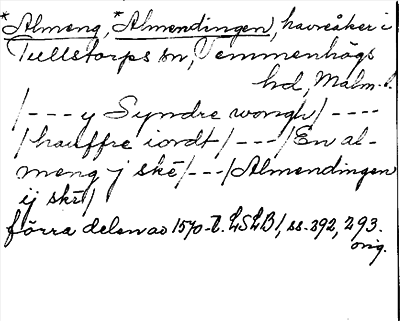 *Almeng, *Almendingen, havreåker i
Tullstorps sn, Vemmenhögs
hd, Malm. l.
/---y Syndre wongh/----
/hauffre iordt/---/En al-
meng j skē/---/Almendingen
ij skē/
förra delen av 1570-t. LSLB1, ss. 292, 293.
orig.